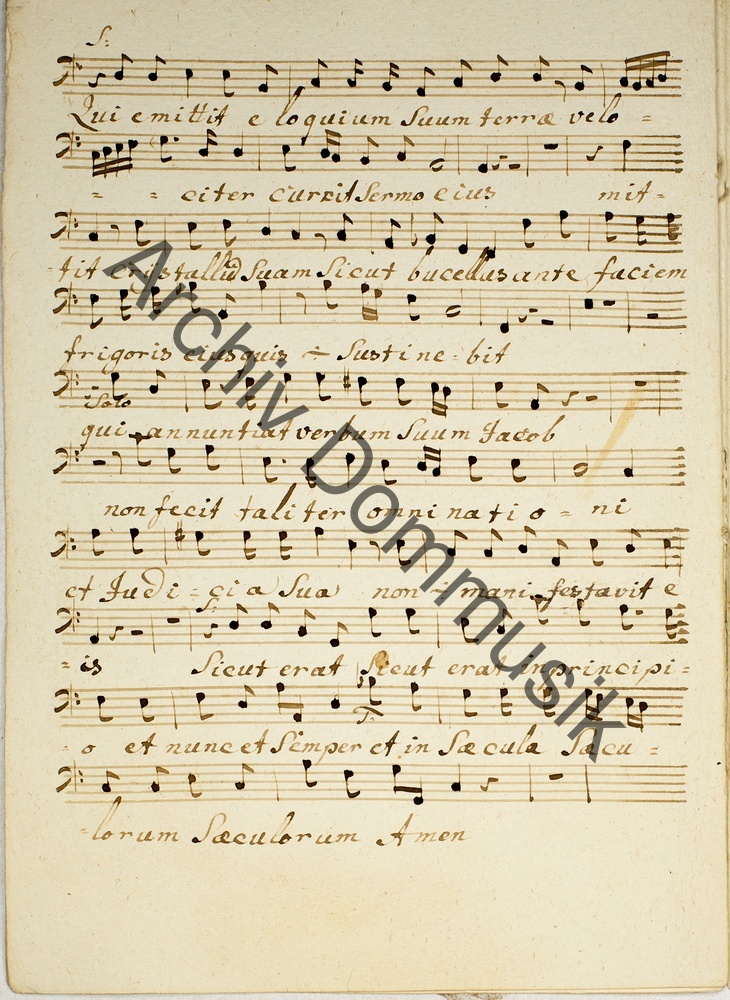 S:
Qui emittit eloquium Suum terræ velo =
= = citer currit Sermo eius mit =
- tit cristallũ Suam Sicut bucellas ante faciem
frigoris eius quis ÷ Sustine = bit
Solo
qui annuntiat verbum Suum Jacob
non fecit taliter omni natio = ni
et Judi = cia Sua non ÷ mani = festavit e
S:
= is Sicut erat Sicut erat in principi =
T:
- o et nunc et Semper et in Sæcula Sæcu =
= lorum Sæculorum Amen
Archiv Dommusik